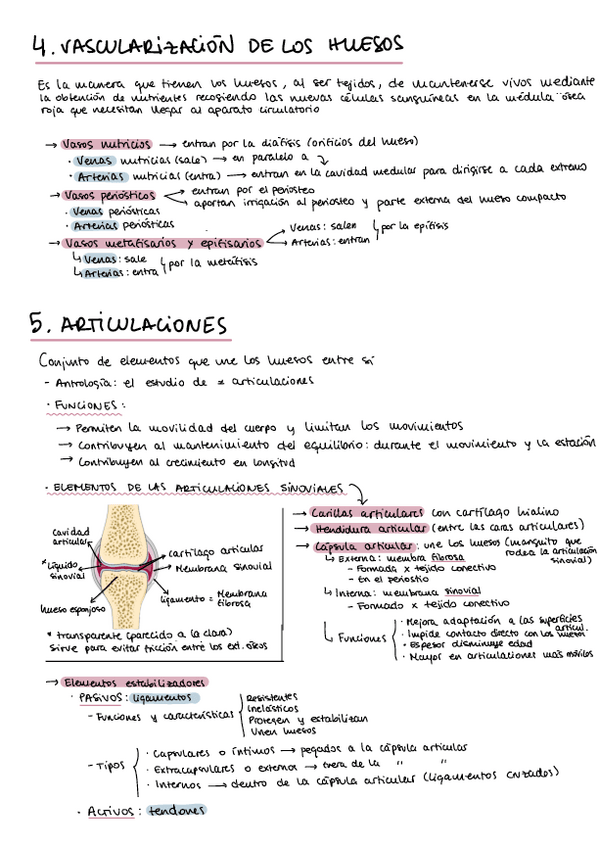 4. VASCULARIZACIÓN DE LOS HUESOS
Es la manera que tienen los huesos, al ser tejidos, de mantenerse vivos mediante
la obtención de nutrientes recogiendo las nuevas células sanguíneas en la médula ósea
roja que necesitan llegar al aparato circulatorio
→ Vasos nutricios → entran por la diáfisis (orificios del hueso)
· Venas nutricias (sale) → en paralelo a
· Arterias nutricias (entra) → entran en la cavidad medular para dirigirse a cada extremo
→ Vasos periósticos → entran por el periosteo
→ aportan irrigación al periosteo y parte externa del hueso compacto
· Venas periósticas
· Arterias periósticas
→ Vasos metafisarios y epifisarios → Venas: salen
→ Arterias: entran } por la epífisis
↳ Venas: sale
↳ Arterias: entra } por la metáfisis
5. ARTICULACIONES
Conjunto de elementos que une los huesos entre sí
- Antrología: el estudio de x articulaciones
· FUNCIONES:
→ Permiten la movilidad del cuerpo y limitan los movimientos
→ Contribuyen al mantenimiento del equilibrio: durante el movimiento y la estación
→ Contribuyen al crecimiento en longitud
· ELEMENTOS DE LAS ARTICULACIONES SINOVIALES
→ Carillas articulares con cartílago hialino
→ Hendidura articular (entre las caras articulares)
→ Cápsula articular: une los huesos (manguito que
rodea la articulación
sinovial)
↳ Externa: membra fibrosa
- Formada x tejido conectivo
- En el periostio
↳ Interna: membrana sinovial
- Formado x tejido conectivo
↳ Funciones
· Mejora adaptación a las superficies
articul.
· Impide contacto directo con los huesos
· Espesor disminuye edad
· Mayor en articulaciones más móviles
Cavidad
articular
* Líquido
sinovial
hueso esponjoso
cartílago articular
Membrana sinovial
ligamento = Membrana
fibrosa
* transparente (parecido a la clara)
sirve para evitar fricción entre los ext. óseos
→ Elementos estabilizadores
· PASIVOS: ligamentos
- Funciones y características
Resistentes
Inelásticos
Protegen y estabilizan
Unen huesos
- Tipos
· Capsulares o íntimos → pegados a la cápsula articular
· Extracapsulares o externos → fuera de la " "
· Internos → dentro de la cápsula articular (ligamentos cruzados)
· Activos: tendones